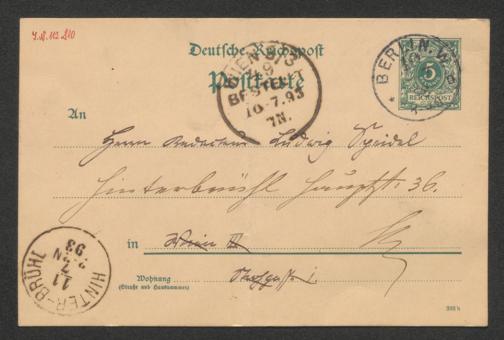 I.N. 112.210
Deutsche Reichspost
Postkarte
WIEN 9/3
BESTELLT
10.7.93
7N.
BERLIN, W.
5
REICHSPOST
An
Herrn Redacteur Ludwig Speidel
Hinterbrühl Hauptstr. 36.
in Wien
Wohnung
(Straße und Hausnummer)
HINTER-BRÜHL
11
7
93